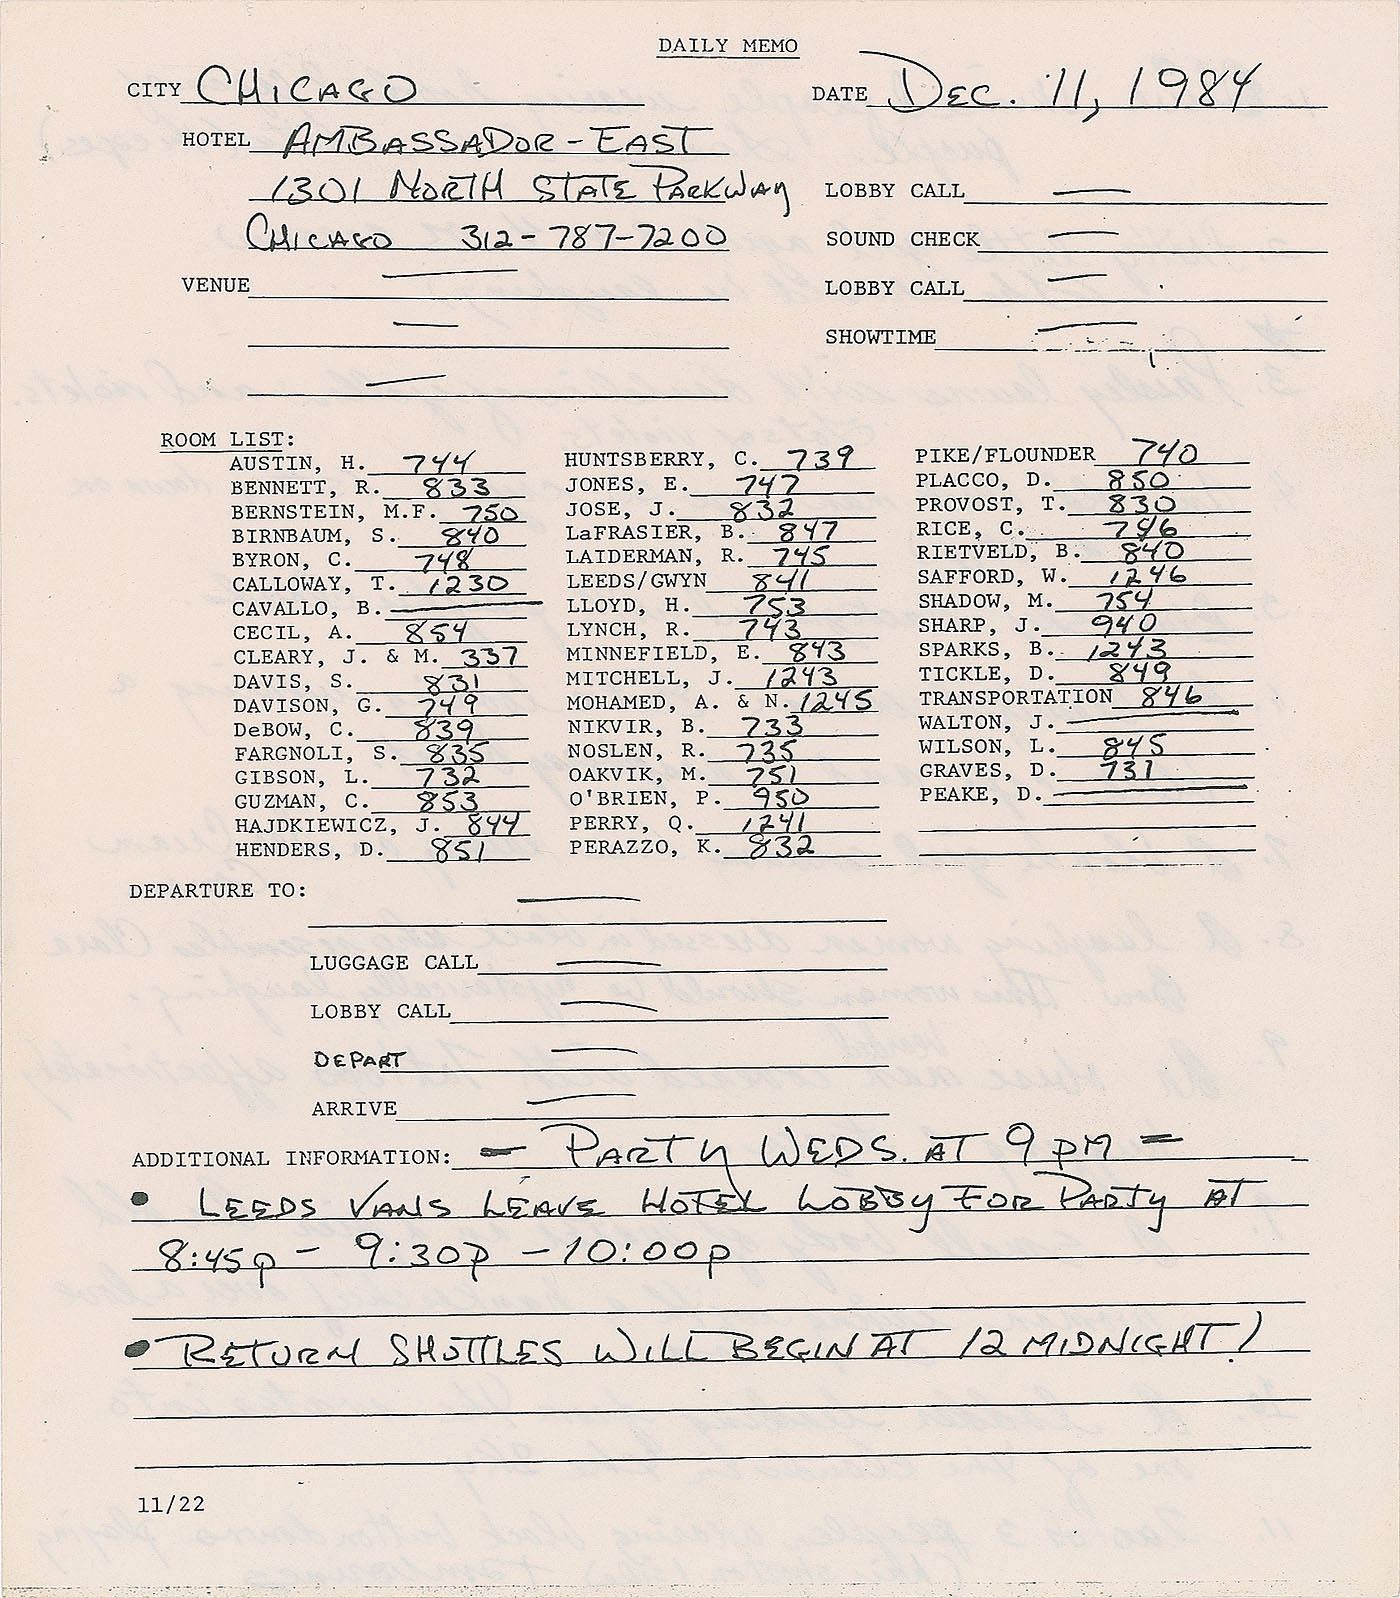 DAILY MEMO
CITY CHICAGO DATE DEC. 11, 1984
HOTEL AMBASSADOR-EAST
1301 NORTH STATE PARKWAY LOBBY CALL —
CHICAGO 312-787-7200 SOUND CHECK —
VENUE — LOBBY CALL —
— SHOWTIME —
—
ROOM LIST:
AUSTIN, H. 744
BENNETT, R. 833
BERNSTEIN, M.F. 750
BIRNBAUM, S. 840
BYRON, C. 748
CALLOWAY, T. 1230
CAVALLO, B. —
CECIL, A. 854
CLEARY, J. & M. 337
DAVIS, S. 831
DAVISON, G. 749
DeBOW, C. 839
FARGNOLI, S. 835
GIBSON, L. 732
GUZMAN, C. 853
HAJDKIEWICZ, J. 844
HENDERS, D. 851
HUNTSBERRY, C. 739
JONES, E. 747
JOSE, J. 832
LaFRASIER, B. 847
LAIDERMAN, R. 745
LEEDS/GWYN 841
LLOYD, H. 753
LYNCH, R. 743
MINNEFIELD, E. 843
MITCHELL, J. 1243
MOHAMED, A. & N. 1245
NIKVIR, B. 733
NOSLEN, R. 735
OAKVIK, M. 751
O'BRIEN, P. 950
PERRY, Q. 1241
PERAZZO, K. 832
PIKE/FLOUNDER 740
PLACCO, D. 850
PROVOST, T. 830
RICE, C.
RIETVELD, B. 840
SAFFORD, W. 1246
SHADOW, M. 754
SHARP, J. 940
SPARKS, B. 1243
TICKLE, D. 849
TRANSPORTATION 846
WALTON, J. —
WILSON, L. 845
GRAVES, D. 731
PEAKE, D. —
DEPARTURE TO: —
LUGGAGE CALL —
LOBBY CALL —
DEPART —
ARRIVE —
ADDITIONAL INFORMATION: — PARTY WEDS. AT 9 PM =
• LEEDS VANS LEAVE HOTEL LOBBY FOR PARTY AT
8:45p - 9:30p - 10:00p
• RETURN SHUTTLES WILL BEGIN AT 12 MIDNIGHT!
11/22